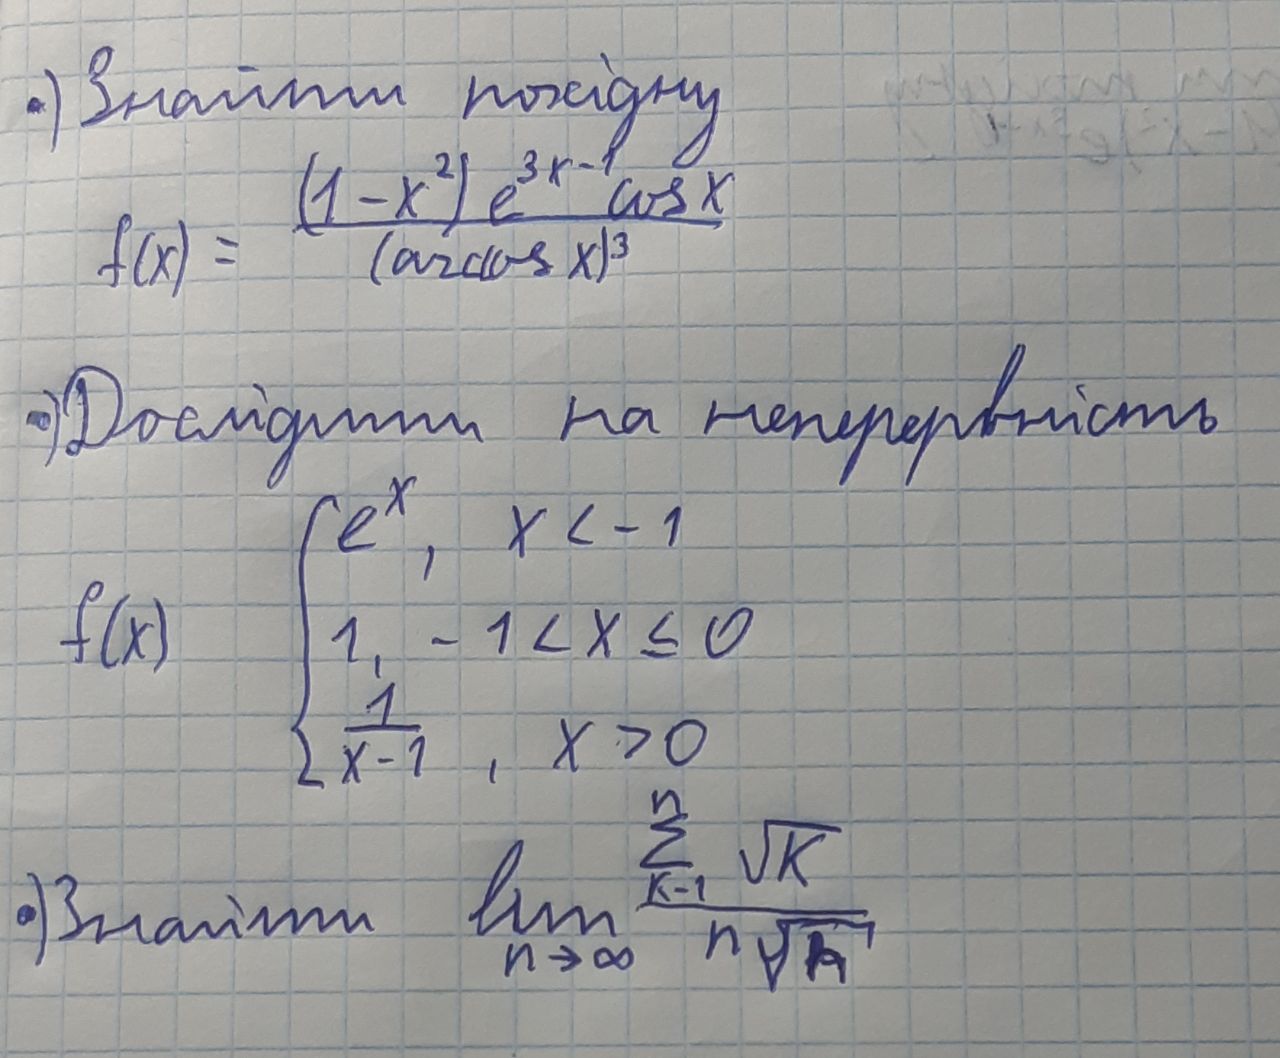 •) Знайти похідну
f(x) = \frac{(1-x^2) e^{3x-1} cos x}{(arccos x)^3}
•) Дослідити на неперервність
f(x) { e^x, x < -1
1, -1 < x ≤ 0
\frac{1}{x-1}, x > 0
•) Знайти \lim_{n→∞} \frac{\sum_{k-1}^{n} \sqrt{k}}{n\sqrt{n}}